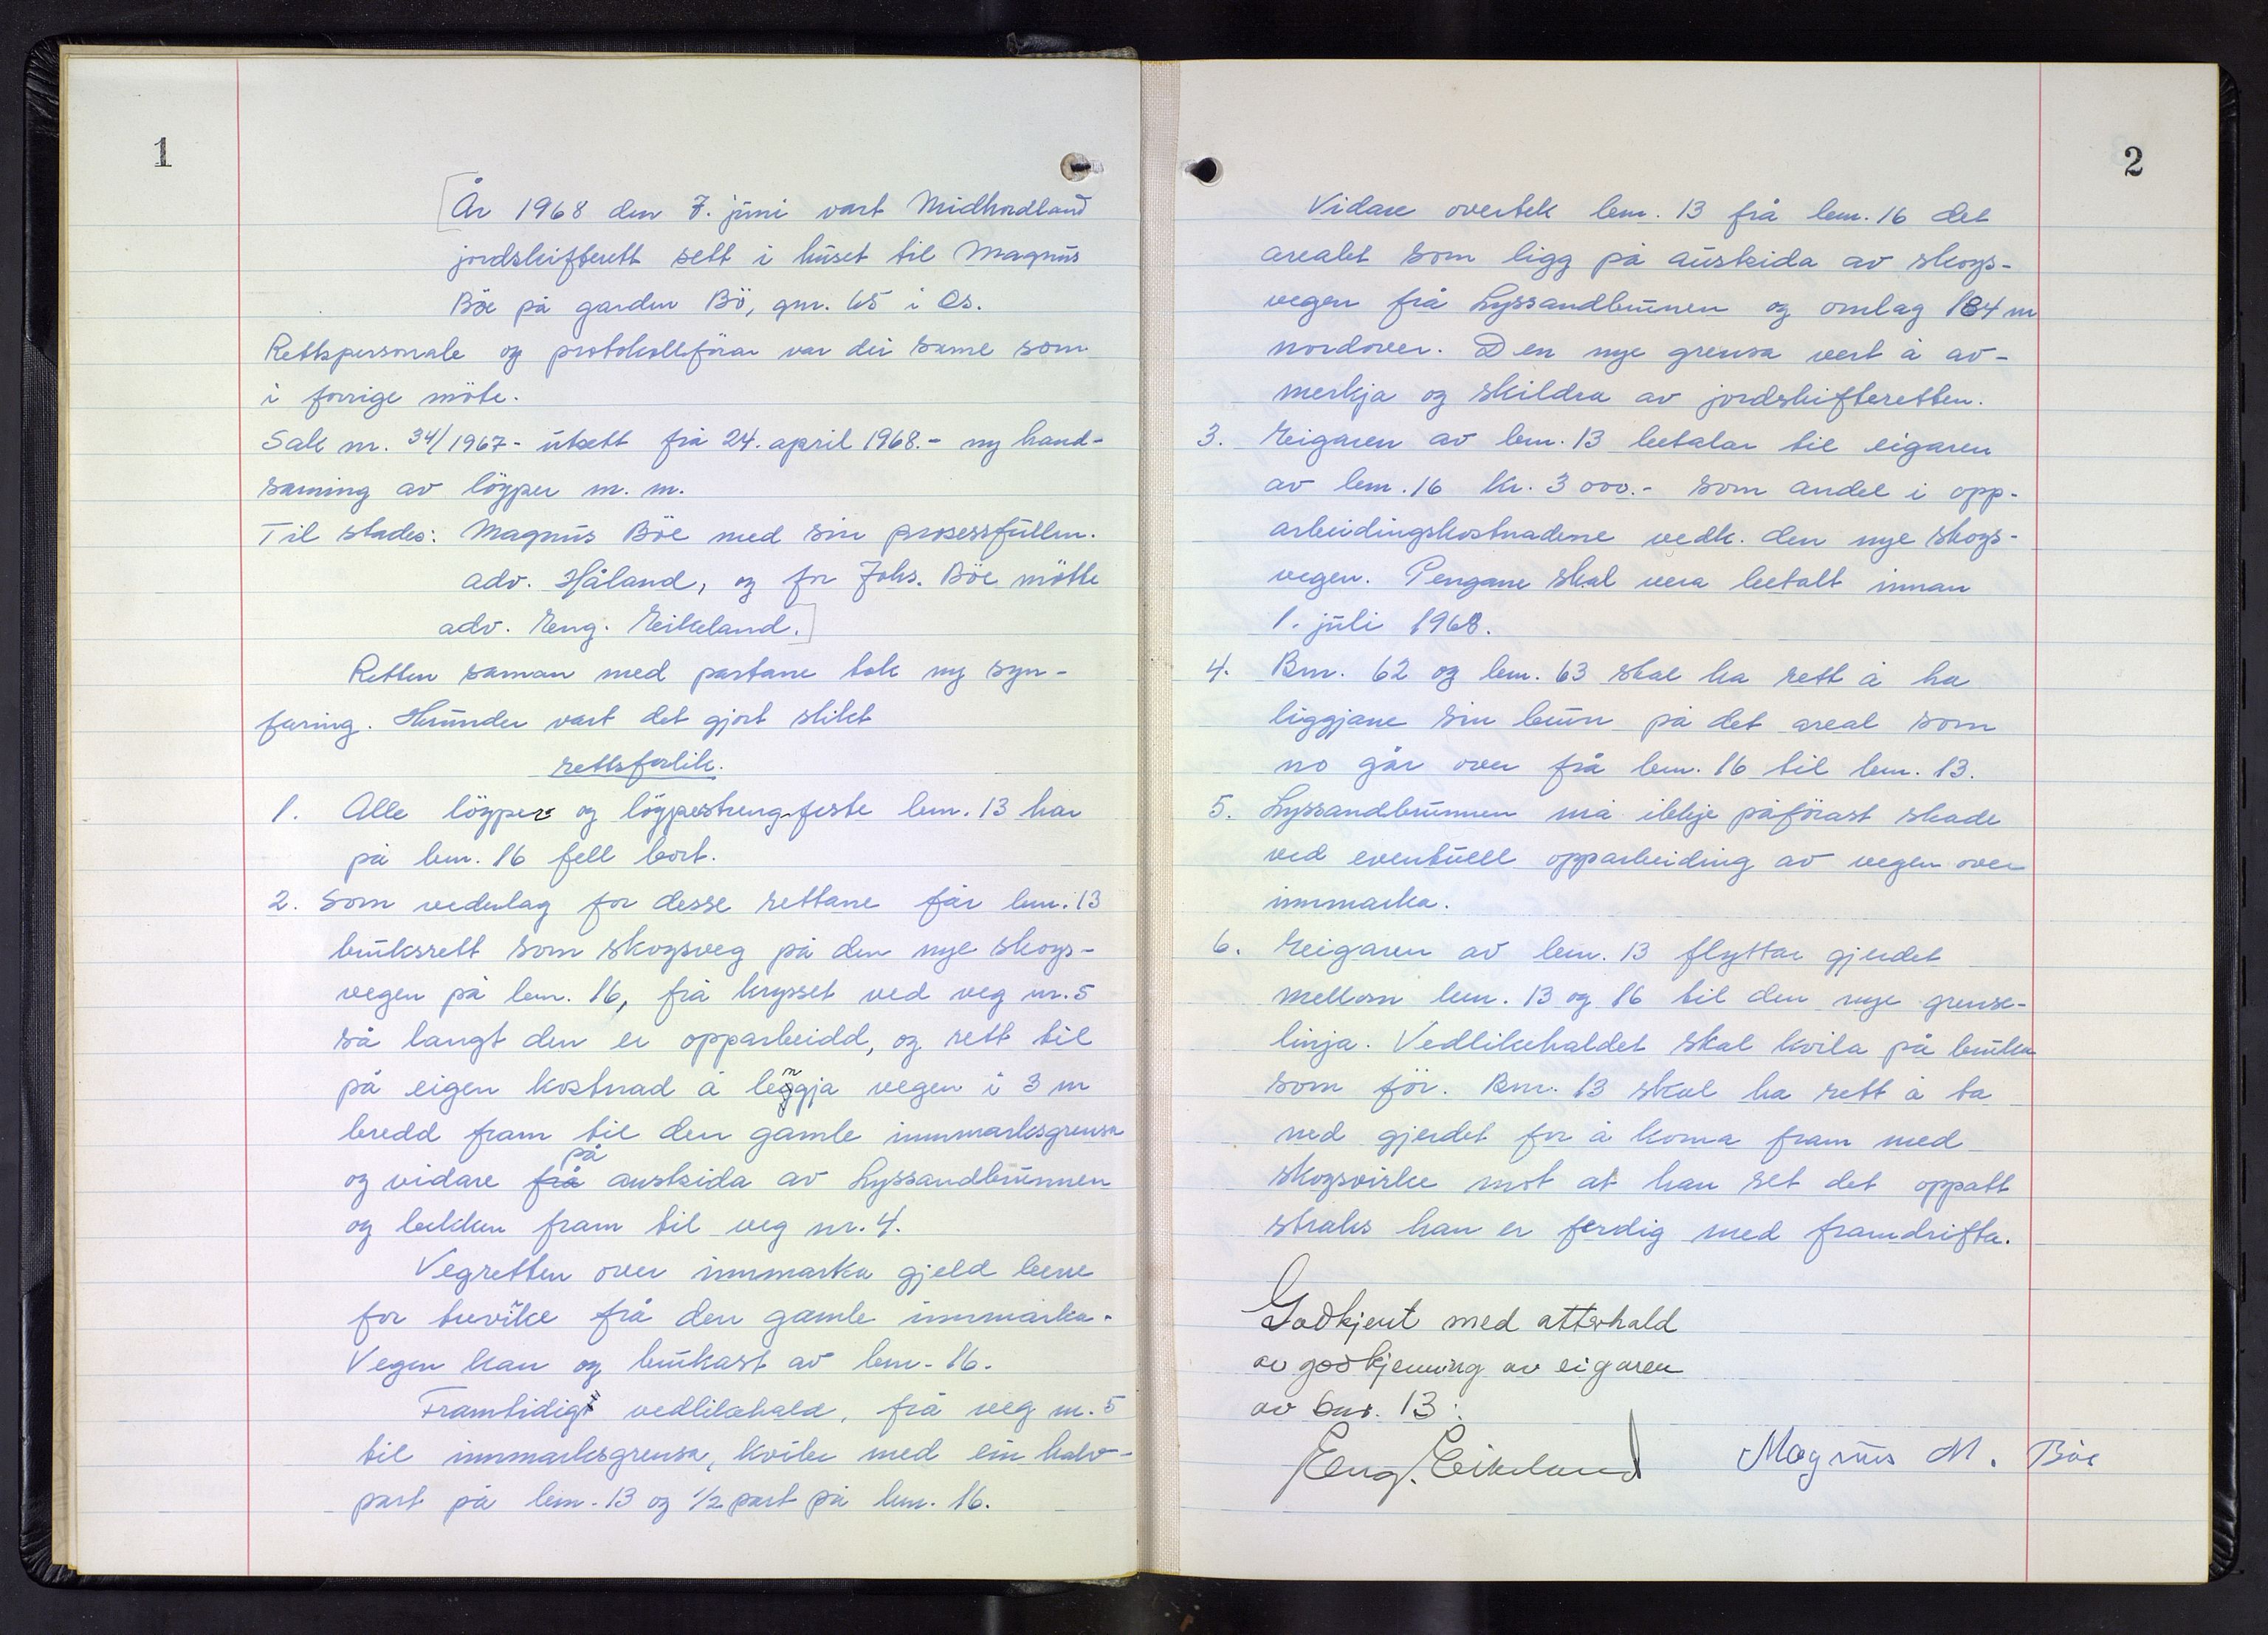 1
År 1968 den 7. juni vart Midhordland
jordskifterett sett i huset til Magnus
Böe på garden Bö, gnr. 65 i Os.
Rettspersonale og protokollförar var dei same som
i forrige möte.
Sak nr. 34/1967 - utsett frå 24. april 1968. - ny hand-
saming av löyper m. m.
Til stades: Magnus Böe med sin prosessfullm.
adv. Håland, og for Johs. Böe mötte
adv. Eng. Eikeland.
Retten saman med partane tok ny syn-
faring. Herunder vart det gjort slikt
rettsforlik.
1. Alle löyper og löypestrengfeste bnr. 13 har
på bnr. 16 fell bort.
2. Som vederlag for desse rettane får bnr. 13
bruksrett som skogsveg på den nye skogs-
vegen på bnr. 16, frå krysset ved veg nr. 5
så langt den er opparbeidd, og rett til
på eigen kostnad å lengja vegen i 3 m
bredd fram til den gamle innmarksgrensa
og vidare frå på austsida av Lyssandbrunnen
og bekken fram til veg nr. 4.
Vegretten over innmarka gjeld berre
for trevike frå den gamle innmarka.
Vegen kan og brukast av bnr. 16.
Framtidig vedlikehald, frå veg nr. 5
til innmarksgrensa, kviler med ein halv-
part på bnr. 13 og 1/2 part på bnr. 16.
2
Vidare overtek bnr. 13 frå bnr. 16 det
arealet som ligg på austsida av skogs-
vegen frå Lyssandbrunnen og omlag 184 m
nordover. Den nye grensa vert å av-
merkja og skildra av jordskifteretten.
3. Eigaren av bnr. 13 betalar til eigaren
av bnr. 16 kr. 3 000.- som andel i opp-
arbeidingskostnadene vedk. den nye skogs-
vegen. Pengane skal vera betalt innan
1. juli 1968.
4. Bnr. 62 og bnr. 63 skal ha rett å ha
liggjane sin brunn på det areal som
no går over frå bnr. 16 til bnr. 13.
5. Lyssandbrunnen må ikkje påförast skade
ved eventuell opparbeiding av vegen over
innmarka.
6. Eigaren av bnr. 13 flyttar gjerdet
mellom bnr. 13 og 16 til den nye grense-
linja. Vedlikehaldet skal kvila på bruka
som för. Bnr. 13 skal ha rett å ta
ned gjerdet for å koma fram med
skogsvirke mot at han set det oppatt
straks han er ferdig med framdrifta.
Godkjent med atterhald
av godkjenning av eigaren
av bnr. 13:
Eng. Eikeland Magnus M. Böe